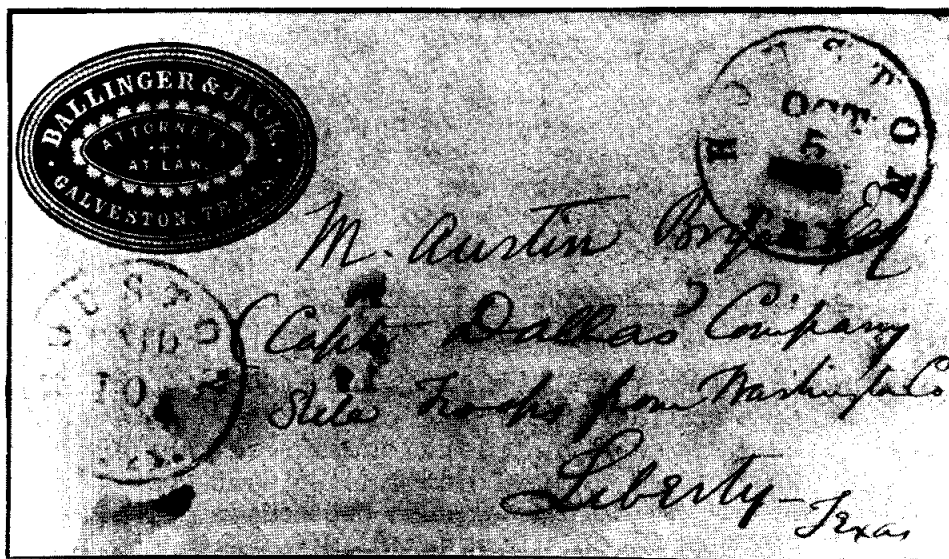 BALLINGER & JACK.
ATTORNEYS
AT LAW
GALVESTON, TEXAS
HOUSTON
OCT
5
M. Austin Bryan Esq
Capt Dallas' Company
State Troops from Washington Co
Liberty - Texas
PAID
10